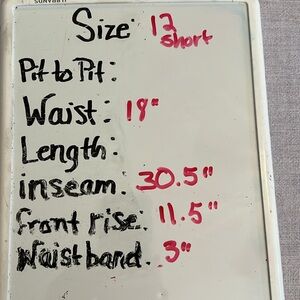 Size: 12
short
Pit to Pit:
Waist: 19"
Length:
inseam: 30.5"
front rise: 11.5"
Waistband. 3"